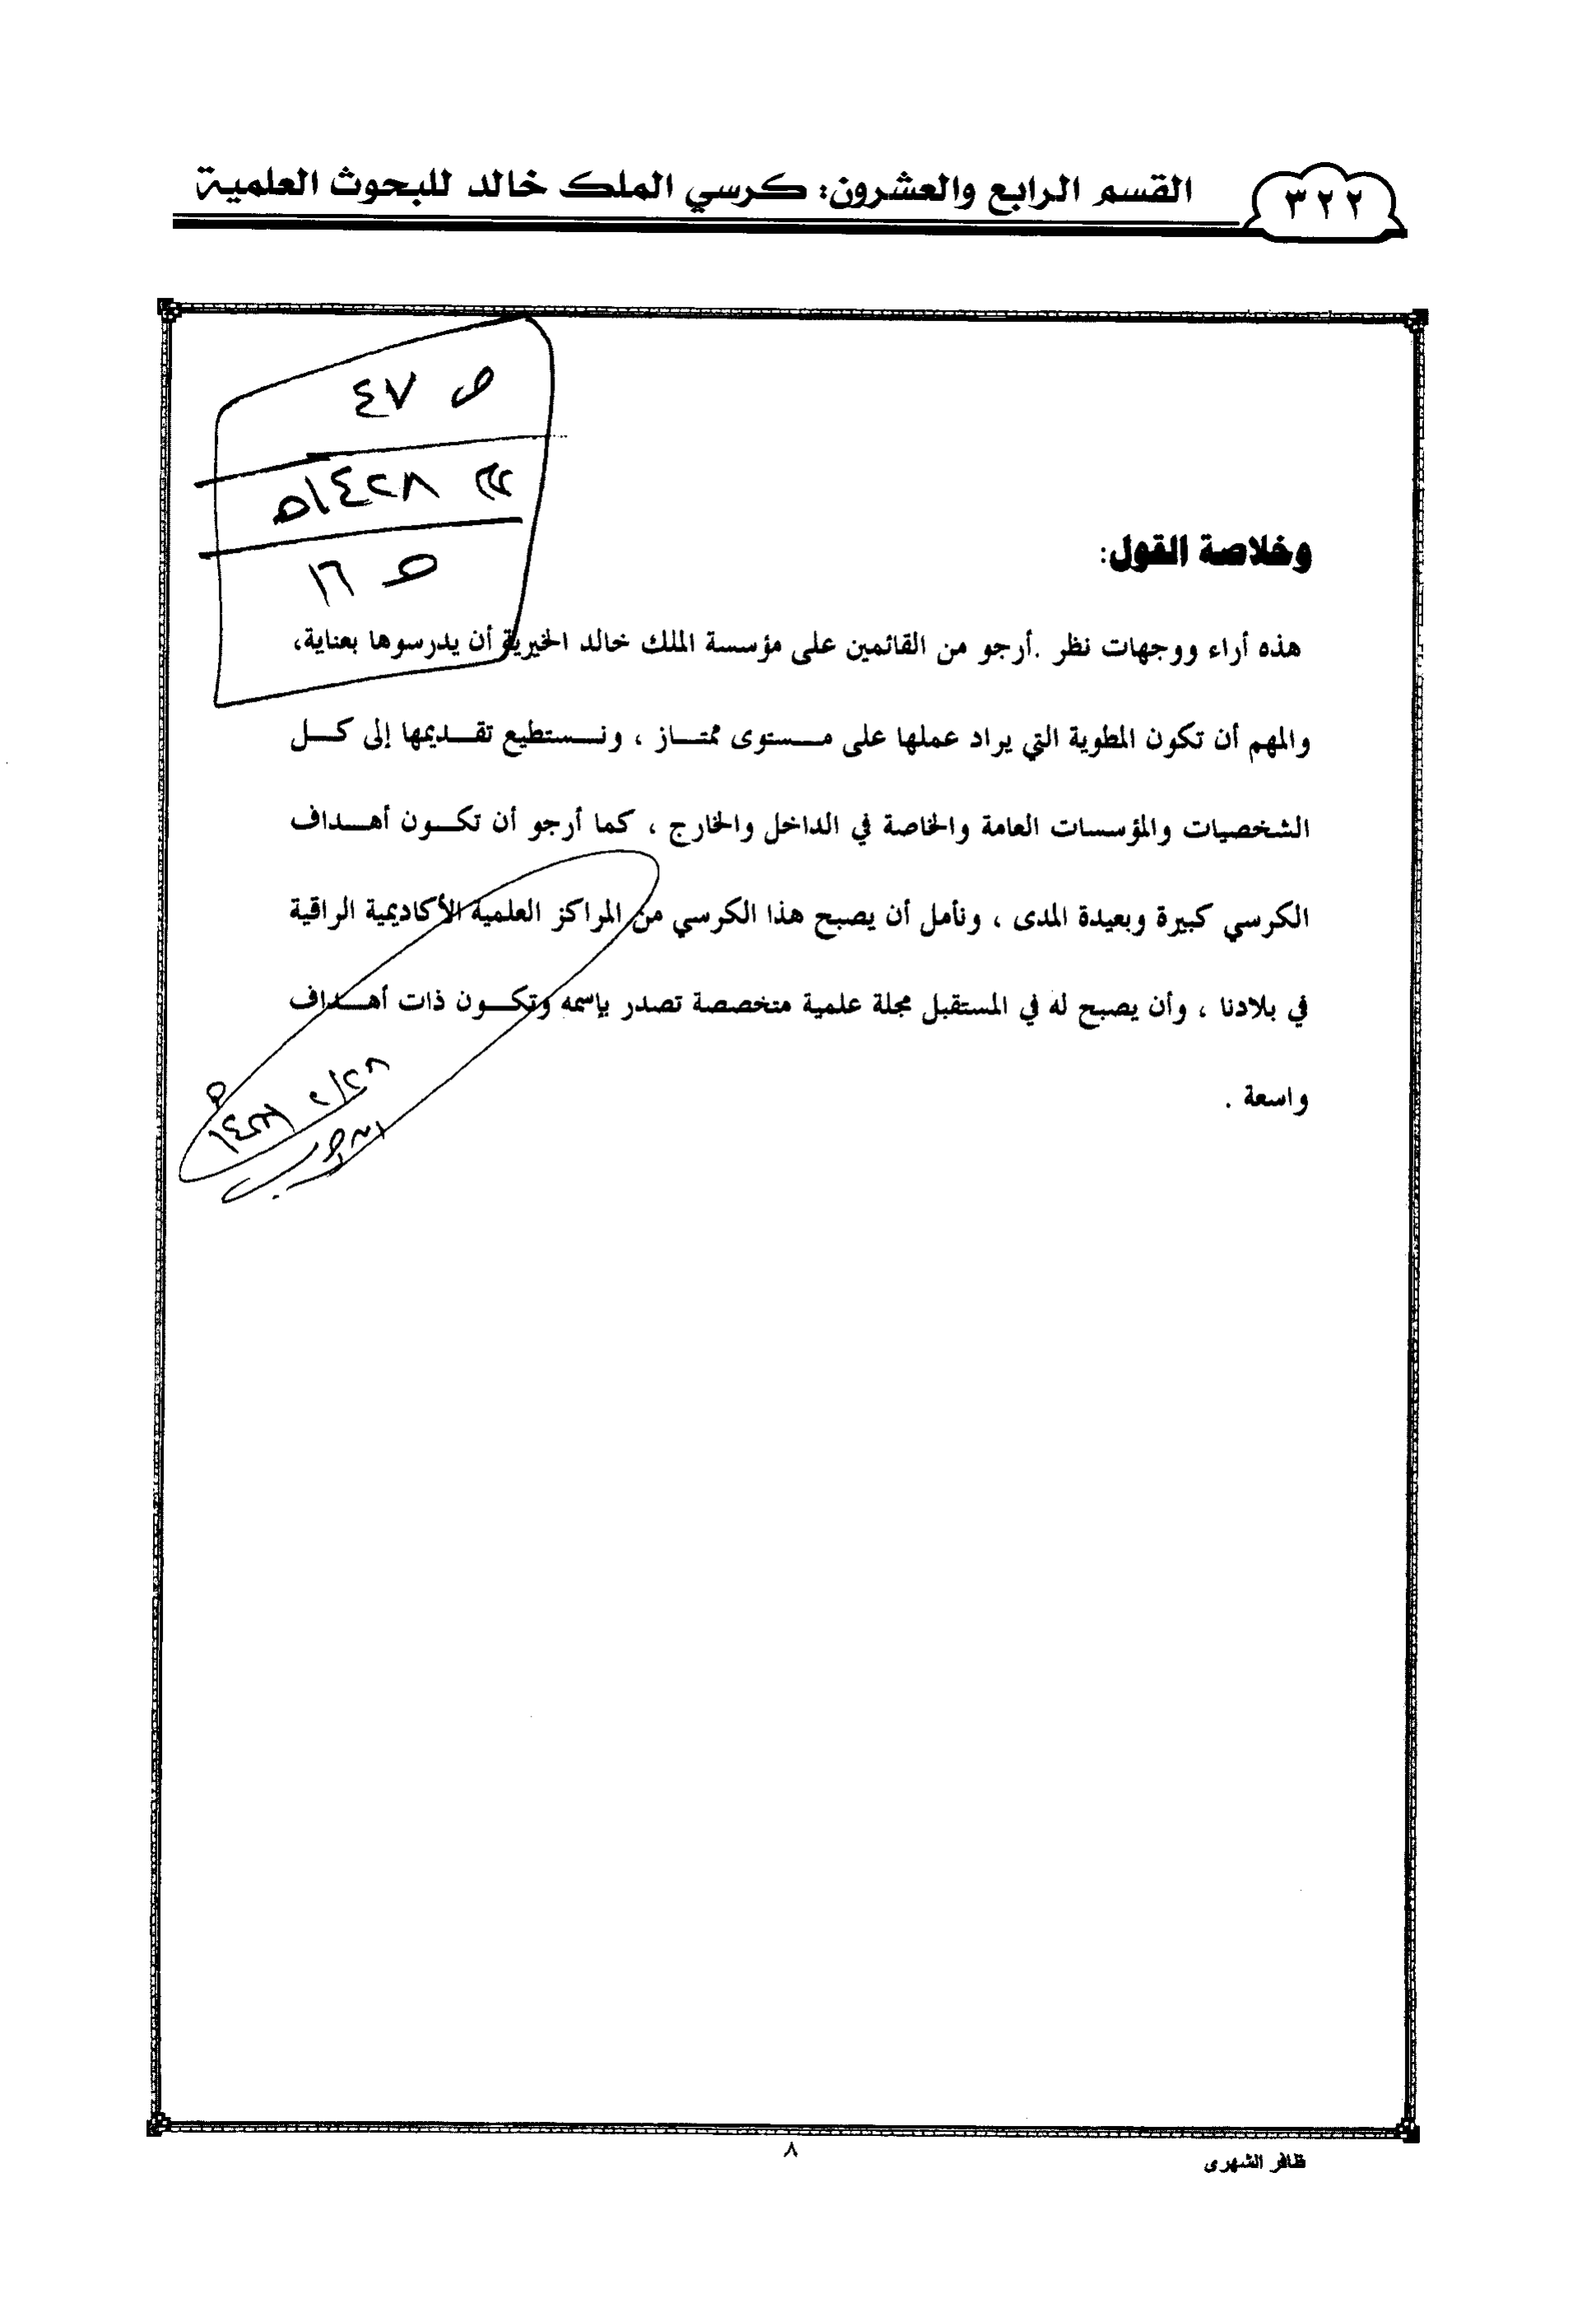 ٣٢٢
القسم الرابع والعشرون: كرسي الملك خالد للبحوث العلمية
ص ٤٧
١٤٢٨هـ
ص ١٦
وخلاصة القول:
هذه أراء ووجهات نظر .أرجو من القائمين على مؤسسة الملك خالد الخيرية أن يدرسوها بعناية،
والمهم أن تكون المطوية التي يراد عملها على مستوى ممتاز ، ونستطيع تقديمها إلى كل
الشخصيات والمؤسسات العامة والخاصة في الداخل والخارج ، كما أرجو أن تكون أهداف
الكرسي كبيرة وبعيدة المدى ، ونأمل أن يصبح هذا الكرسي من المراكز العلمية الأكاديمية الراقية
في بلادنا ، وأن يصبح له في المستقبل مجلة علمية متخصصة تصدر بإسمه وتكون ذات أهداف
واسعة .
٢/٢٨
٨
ظافر الشهرى